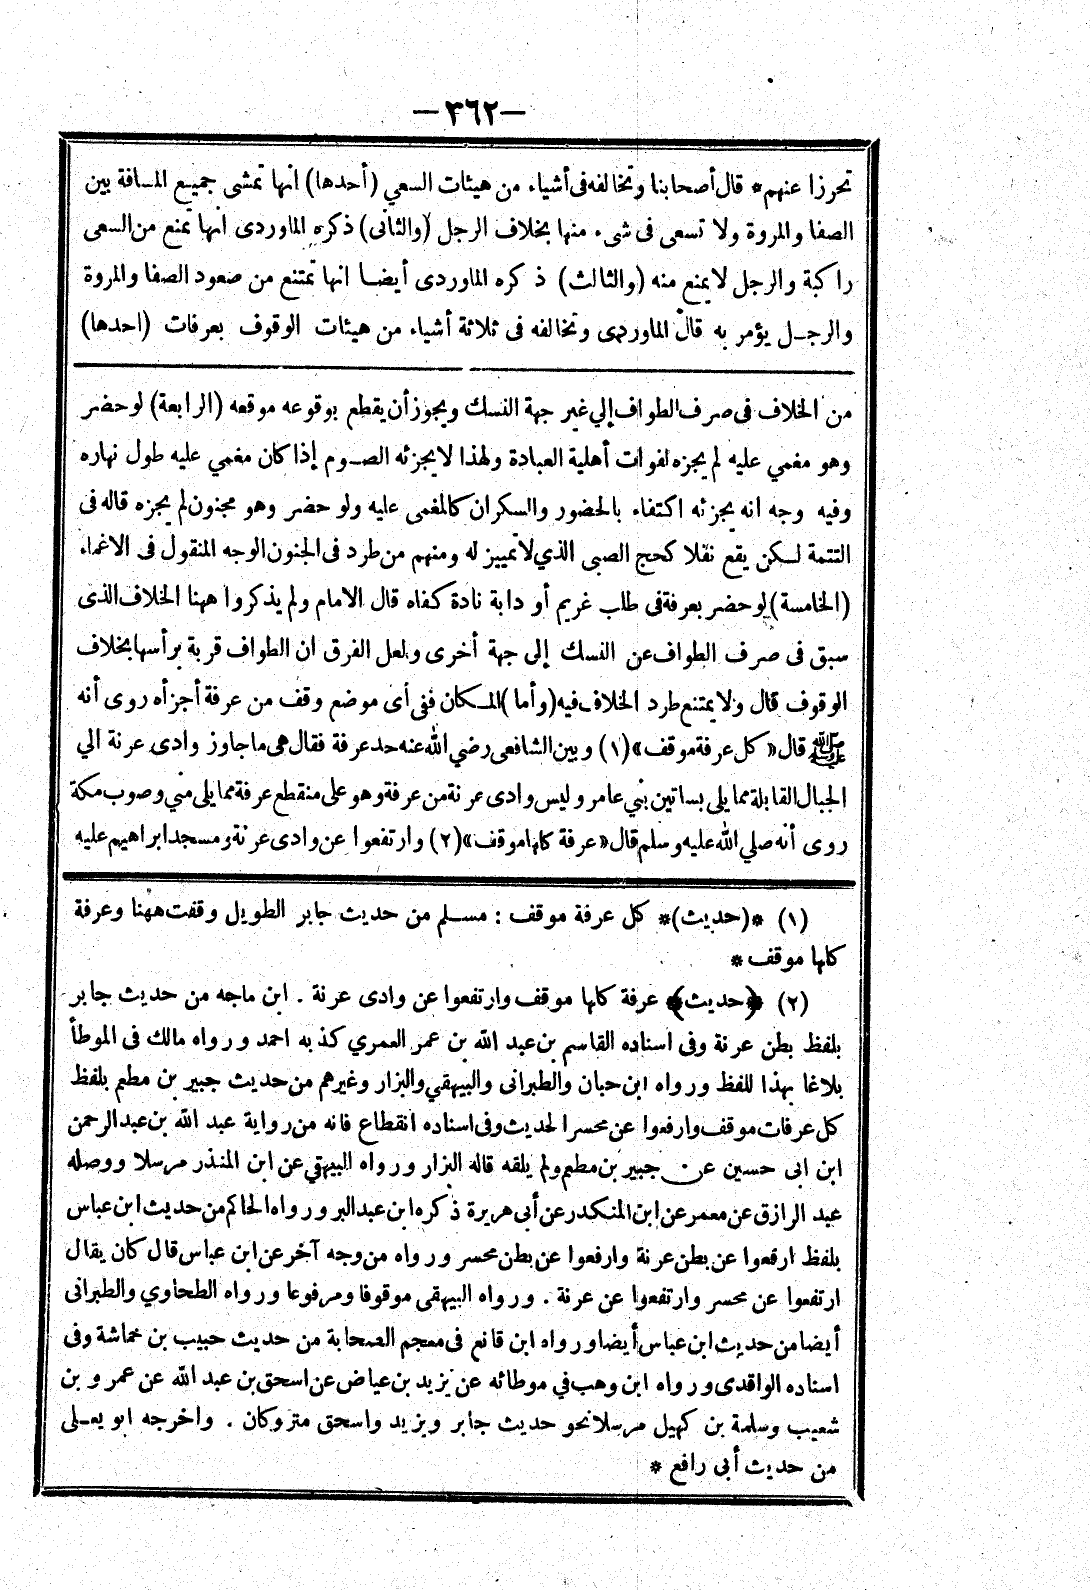 —٣٦٢—
تحرزا عنهم* قال أصحابنا وتخالفه فى أشياء من هيئات السعي (أحدها) انها تمشى جميع المسافة بين
الصفا والمروة ولا تسعى فى شىء منها بخلاف الرجل (والثانى) ذكره الماوردى انها تمنع من السعى
راكبة والرجل لا يمنع منه (والثالث) ذكره الماوردى أيضا انها تمتنع من صعود الصفا والمروة
والرجل يؤمر به قال الماوردى وتخالفه فى ثلاثة أشياء من هيئات الوقوف بعرفات (احدها)
من الخلاف فى صرف الطواف إلي غير جهة النسك ويجوز أن يقطع بوقوعه موقعه (الرابعة) لو حضر
وهو مغمي عليه لم يجزه لفوات أهلية العبادة ولهذا لا يجزئه الصوم إذا كان مغمي عليه طول نهاره
وفيه وجه انه يجزئه اكتفاء بالحضور والسكران كالمغمى عليه ولو حضر وهو مجنون لم يجزه قاله فى
التتمة لكن يقع نفلا كحج الصبى الذي لا تمييز له ومنهم من طرد فى الجنون الوجه المنقول فى الاغماء
(الخامسة) لو حضر بعرفة فى طلب غريم أو دابة نادة كفاه قال الامام ولم يذكروا ههنا الخلاف الذى
سبق فى صرف الطواف عن النسك إلى جهة أخرى ولعل الفرق ان الطواف قربة برأسها بخلاف
الوقوف قال ولا يمتنع طرد الخلاف فيه (وأما) المكان ففى أى موضع وقف من عرفة أجزأه روى أنه
ﷺ قال «كل عرفة موقف» (١) وبين الشافعى رضي الله عنه حد عرفة فقال هى ما جاوز وادى عرنة الي
الجبال القابلة مما يلى بساتين بني عامر وليس وادى عرنة من عرفة وهو على منقطع عرفة مما يلى منى وصوب مكة
روى أنه صلي الله عليه وسلم قال «عرفة كلها موقف» (٢) وارتفعوا عن وادى عرنة ومسجد ابراهيم عليه
(١) *(حديث)* كل عرفة موقف : مسلم من حديث جابر الطويل وقفت ههنا وعرفة
كلها موقف *
(٢) ﴿حديث﴾ عرفة كلها موقف وارتفعوا عن وادى عرنة . ابن ماجه من حديث جابر
بلفظ بطن عرنة وفى اسناده القاسم بن عبد الله بن عمر العمري كذبه احمد ورواه مالك فى الموطأ
بلاغا بهذا للفظ ورواه ابن حبان والطبرانى والبيهقي والبزار وغيرهم من حديث جبير بن مطعم بلفظ
كل عرفات موقف وارفعوا عن محسر الحديث وفى اسناده انقطاع فانه من رواية عبد الله بن عبد الرحمن
ابن ابى حسين عن جبير بن مطعم ولم يلقه قاله البزار ورواه البيهقى عن ابن المنذر مرسلا ووصله
عبد الرازق عن معمر عن ابن المنكدر عن أبى هريرة ذكره ابن عبد البر ورواه الحاكم من حديث ابن عباس
بلفظ ارفعوا عن بطن عرنة وارفعوا عن بطن محسر ورواه من وجه آخر عن ابن عباس قال كان يقال
ارتفعوا عن محسر وارتفعوا عن عرنة . ورواه البيهقى موقوفا ومرفوعا ورواه الطحاوي والطبرانى
أيضا من حديث ابن عباس أيضا ورواه ابن قانع فى معجم الصحابة من حديث حبيب بن خماشة وفى
اسناده الواقدى ورواه ابن وهب في موطائه عن يزيد بن عياض عن اسحق بن عبد الله عن عمرو بن
شعيب وسلمة بن كهيل مرسلا نحو حديث جابر ويزيد واسحق متروكان . واخرجه ابو يعلى
من حديث أبى رافع *